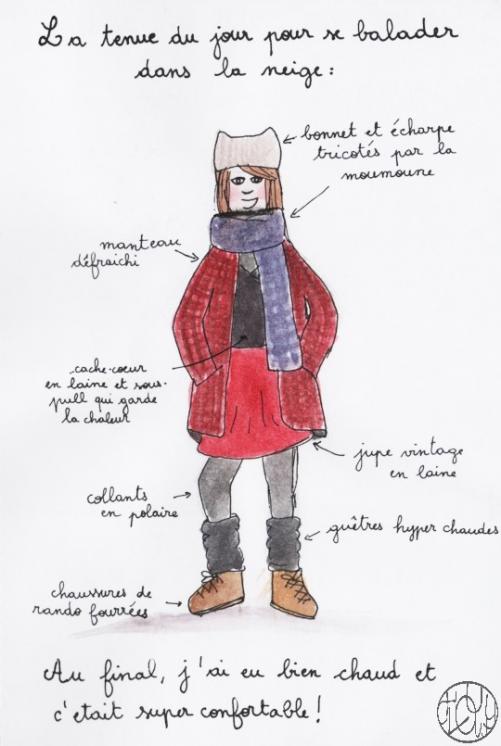 La tenue du jour pour se balader
dans la neige :
bonnet et écharpe
tricotés par la
moumoune
manteau
défraichi
cache-cœur
en laine et sous-
pull qui garde
la chaleur
jupe vintage
en laine
collants
en polaire
guêtres hyper chaudes
chaussures de
rando fourrées
Au final, j'ai eu bien chaud et
c'etait super confortable !